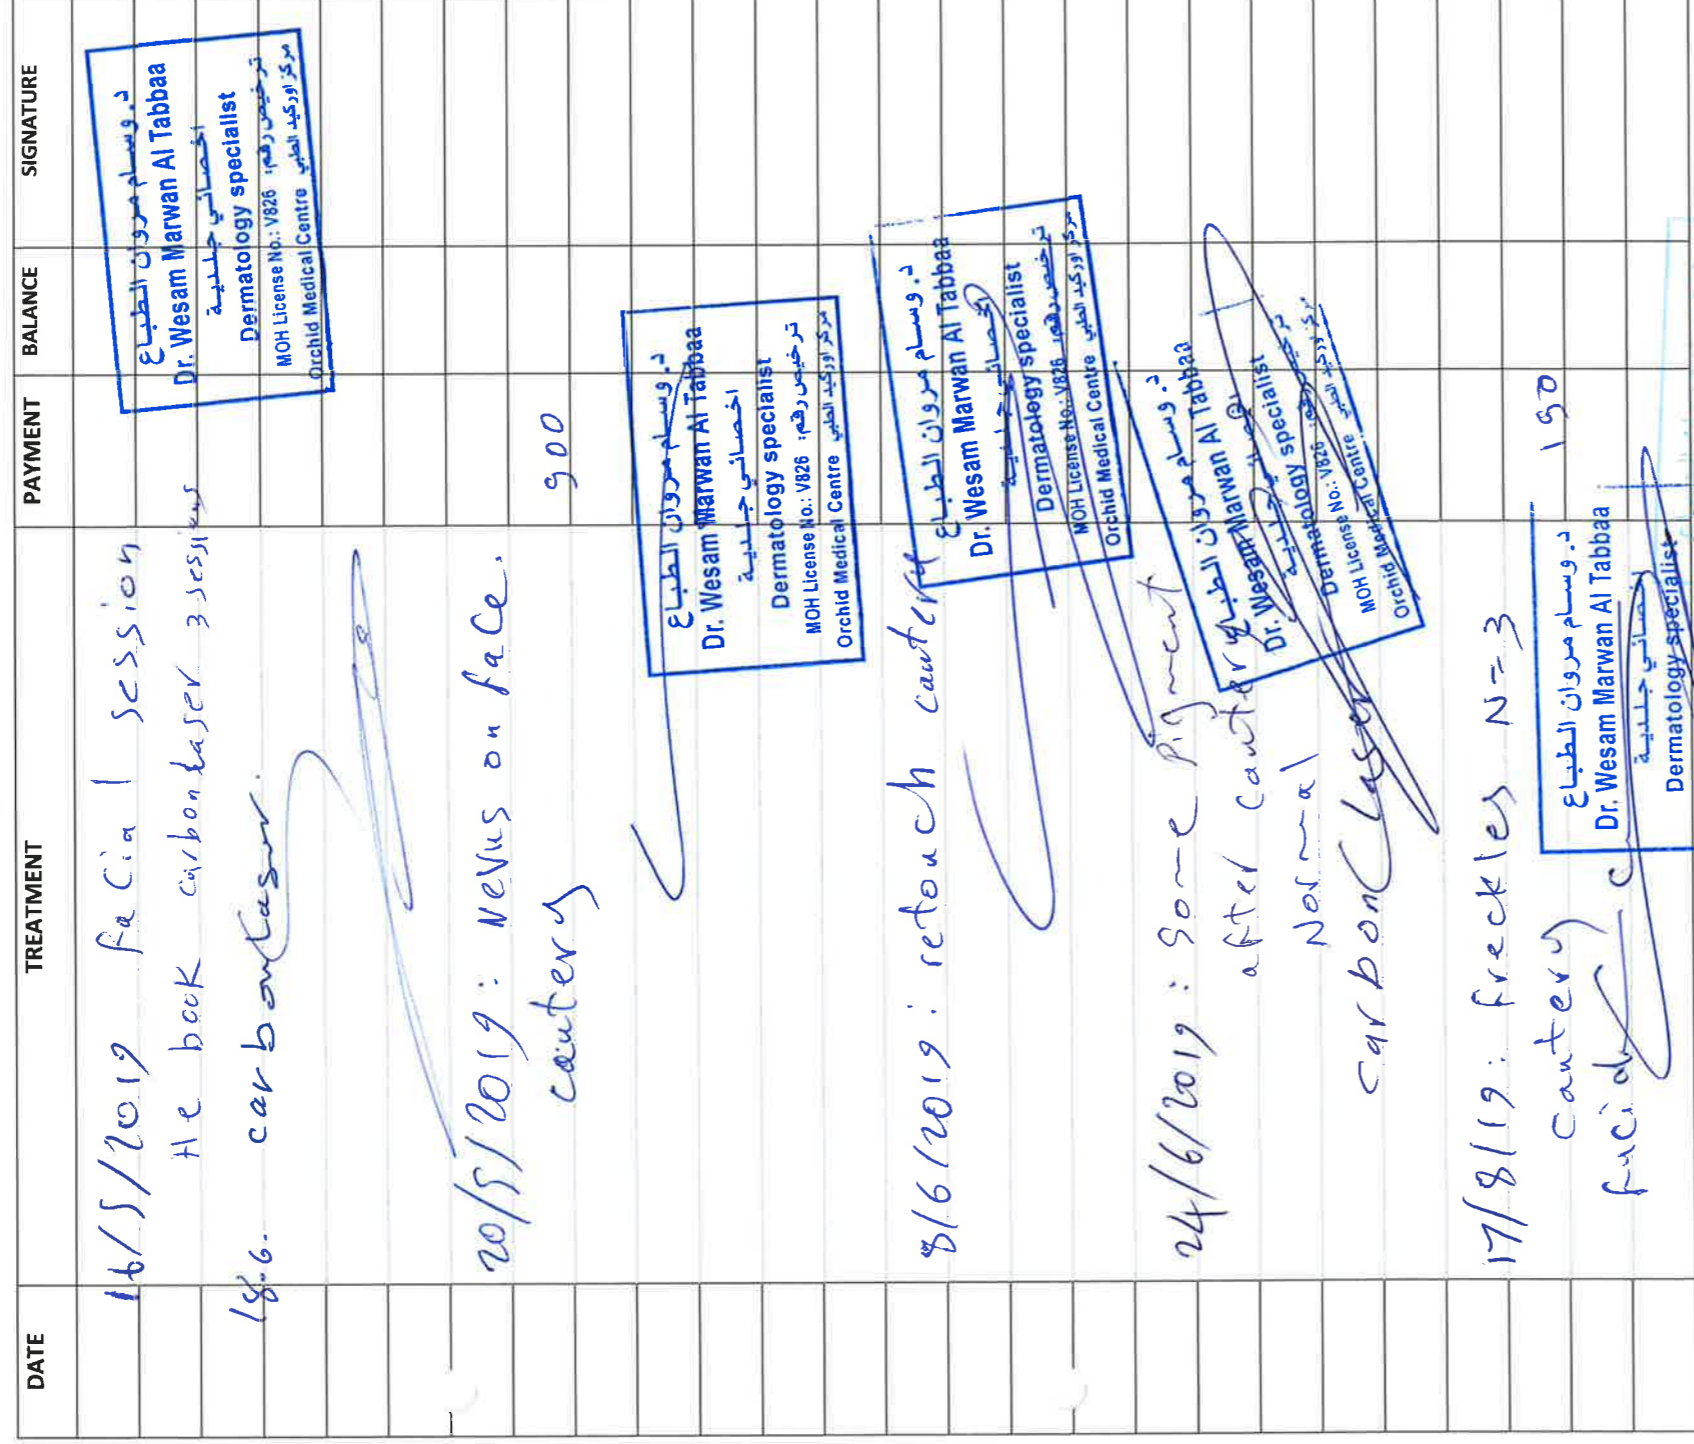 DATE TREATMENT PAYMENT BALANCE SIGNATURE
16/5/2019 facial session
He book carbon laser 3 sessions
18.6. carbon laser.
د. وسام مروان الطباع
Dr. Wesam Marwan Al Tabbaa
اخصائي جلدية
Dermatology specialist
MOH License No.: V826 ترخيص رقم:
Orchid Medical Centre مركز اوركيد الطبي
20/5/2019: Nevus on face.
cautery 900
د. وسام مروان الطباع
Dr. Wesam Marwan Al Tabbaa
اخصائي جلدية
Dermatology specialist
MOH License No.: V826 ترخيص رقم:
Orchid Medical Centre مركز اوركيد الطبي
8/6/2019: retouch cautery
د. وسام مروان الطباع
Dr. Wesam Marwan Al Tabbaa
اخصائي جلدية
Dermatology specialist
MOH License No.: V826 ترخيص رقم:
Orchid Medical Centre مركز اوركيد الطبي
24/6/2019: Some Pigment
after cautery
Normal
carbon Laser
د. وسام مروان الطباع
Dr. Wesam Marwan Al Tabbaa
اخصائي جلدية
Dermatology specialist
MOH License No.: V826 ترخيص رقم:
Orchid Medical Centre مركز اوركيد الطبي
17/8/19: freckles N=3
cautery 150
fucid
د. وسام مروان الطباع
Dr. Wesam Marwan Al Tabbaa
اخصائي جلدية
Dermatology specialist